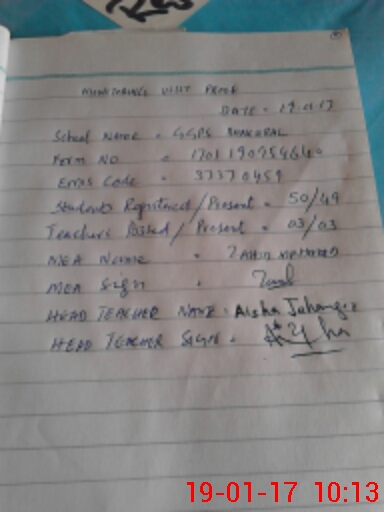 MONITORING VISIT PROOF
DATE = 19-01-17
School Name = GGPS
Form No =
Emis Code = 37370459
Students Registered/Present = 50/49
Teachers Posted/Present = 03/03
MEA Name =
MEA Sign =
HEAD TEACHER NAME: Aisha Jahangir
HEAD TEACHER SIGN =
19-01-17 10:13